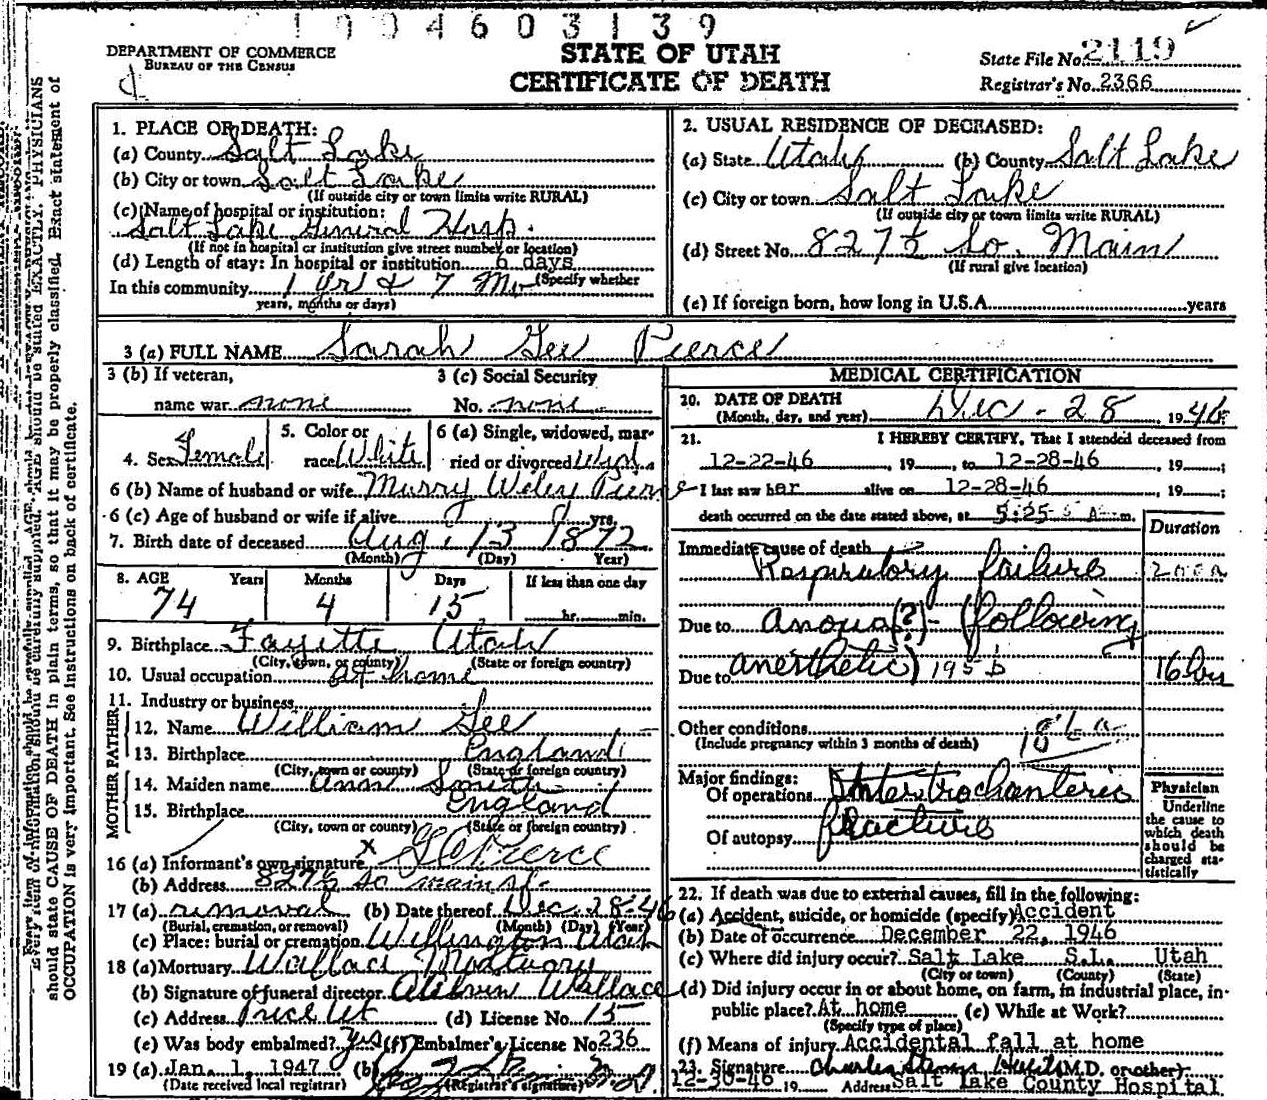 1 0 0 4 6 0 3 1 3 9
DEPARTMENT OF COMMERCE
BUREAU OF THE CENSUS
STATE OF UTAH
CERTIFICATE OF DEATH
State File No. 2119
Registrar's No. 2366
1. PLACE OF DEATH:
(a) County Salt Lake
(b) City or town Salt Lake
(If outside city or town limits write RURAL)
(c) Name of hospital or institution:
Salt Lake General Hosp.
(If not in hospital or institution give street number or location)
(d) Length of stay: In hospital or institution 6 days
(Specify whether
In this community 1 yr & 7 Mo
years, months or days)
2. USUAL RESIDENCE OF DECEASED:
(a) State Utah (b) County Salt Lake
(c) City or town Salt Lake
(If outside city or town limits write RURAL)
(d) Street No. 827½ So. Main
(If rural give location)
(e) If foreign born, how long in U.S.A. years
3 (a) FULL NAME Sarah Gee Pierce
3 (b) If veteran,
name war none
3 (c) Social Security
No. none
4. Sex Female
5. Color or
race White
6 (a) Single, widowed, mar-
ried or divorced Wid.
6 (b) Name of husband or wife Murry Wiley Pierce
6 (c) Age of husband or wife if alive yrs.
7. Birth date of deceased Aug. 13 1872
(Month) (Day) Year)
8. AGE Years Months Days If less than one day
74 4 15 hr. min.
9. Birthplace Fayette Utah
(City, town, or county) (State or foreign country)
10. Usual occupation at home
11. Industry or business
FATHER
12. Name William Gee
13. Birthplace England
(City, town or county) (State or foreign country)
MOTHER
14. Maiden name Ann Smith
15. Birthplace England
(City, town or county) (State or foreign country)
16 (a) Informant's own signature x G Pierce
(b) Address 827½ So main st.
17 (a) removal (b) Date thereof Dec. 28-46
(Burial, cremation, or removal) (Month) (Day) (Year)
(c) Place: burial or cremation Wellington Utah
18 (a) Mortuary Wallace Mortuary
(b) Signature of funeral director Wallace
(c) Address Price Ut (d) License No. 15
(e) Was body embalmed? Yes (f) Embalmer's License No. 236
19 (a) Jan. 1, 1947 (b) M.D.
(Date received local registrar) (Registrar's signature)
MEDICAL CERTIFICATION
20. DATE OF DEATH
(Month, day, and year) Dec - 28, 1946
21. I HEREBY CERTIFY, That I attended deceased from
12-22-46, 19, to 12-28-46, 19;
I last saw her alive on 12-28-46, 19;
death occurred on the date stated above, at 5:25 A m.
Duration
Immediate cause of death
Respiratory failure
Due to anoxia (?) - (following
Due to anesthetic) 195 b 16 hrs
Other conditions
(Include pregnancy within 3 months of death)
Major findings:
Of operations Intertrochanteric
Of autopsy fracture
Physician
Underline
the cause to
which death
should be
charged sta-
tistically
22. If death was due to external causes, fill in the following:
(a) Accident, suicide, or homicide (specify) Accident
(b) Date of occurrence December 22, 1946
(c) Where did injury occur? Salt Lake S.L. Utah
(City or town) (County) (State)
(d) Did injury occur in or about home, on farm, in industrial place, in-
public place? At home (e) While at Work?
(Specify type of place)
(f) Means of injury Accidental fall at home
23. Signature Charles M.D. or other)
12-30-46 19 Address Salt Lake County Hospital
should state CAUSE OF DEATH in plain terms, so that it may be properly classified. Exact statement of
OCCUPATION is very important. See instructions on back of certificate.